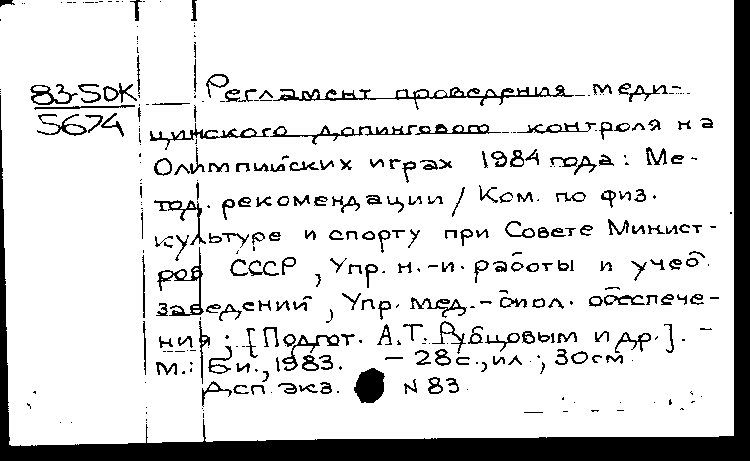 83-5ОК
5674
Регламент проведения меди-
цинского допингового контроля на
Олимпийских играх 1984 года: Ме-
тод. рекомендации / Ком. по физ.
культуре и спорту при Совете Минист-
ров СССР, Упр. н.-и. работы и учеб.
заведений, Упр. мед.-биол. обеспече-
ния; [Подгот. А.Т. Рубцовым и др.]. -
М.: Б.и., 1983. - 28 с., ил.; 30 см
Дсп экз. N 83